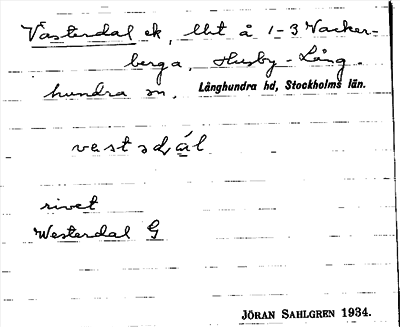 Västerdal ek, Utt å 1-3 Vacker-
berga, Husby-Lång-
hundra sn. Långhundra hd, Stockholms län.
vestsdál
rivet
Westerdal G
JÖRAN SAHLGREN 1934.